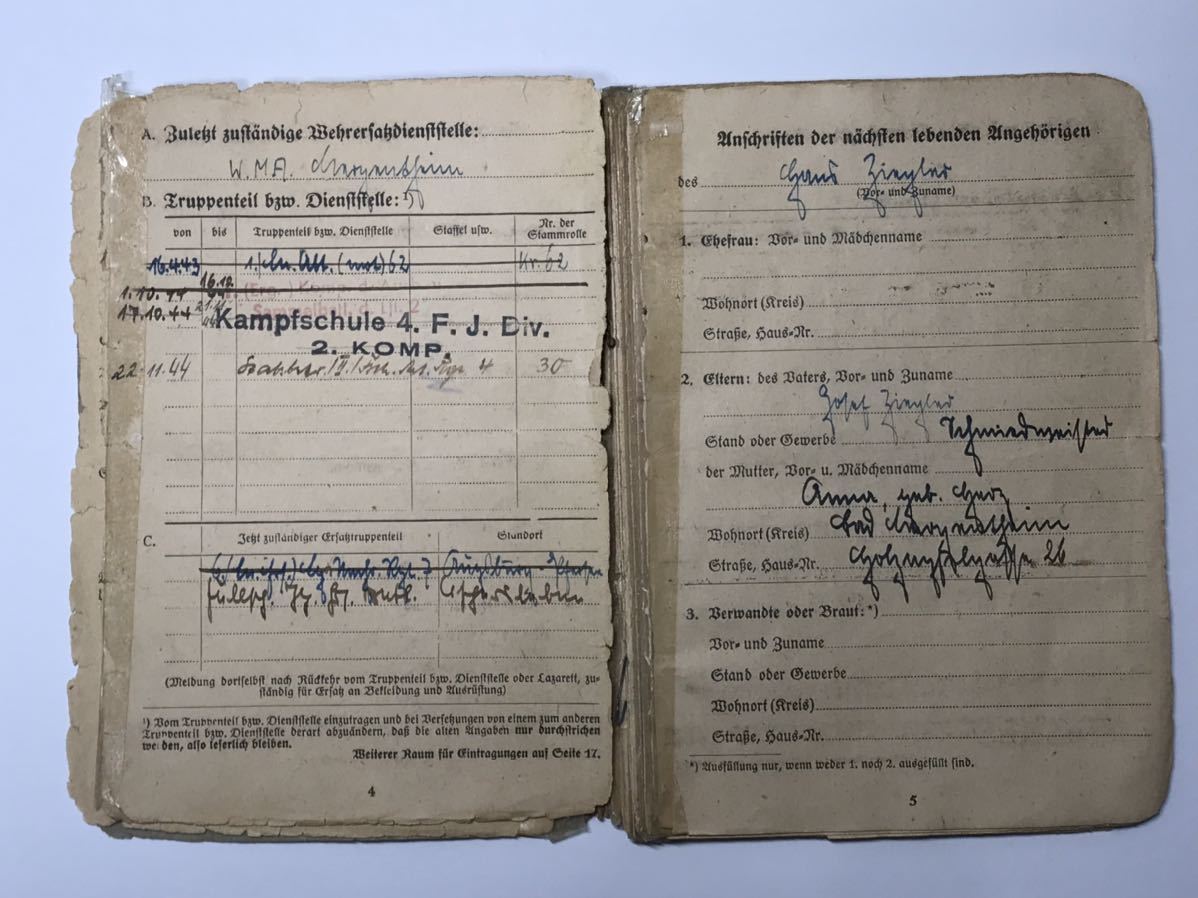 A. Zuletzt zuständige Wehrersatzdienststelle:
W.M.A. Mergentheim
B. Truppenteil bzw. Dienststelle: ¹)
von bis Truppenteil bzw. Dienststelle Staffel usw. Nr. der Stammrolle
16.4.43 1./Ln. Abt. (mot) 62 Nr. 62
16.10.
1.10.44
17.10.44
Kampfschule 4. F. J. Div.
2. KOMP.
22.11.44 4 30
C. Jetzt zuständiger Ersatztruppenteil Standort
Augsburg
(Meldung dortselbst nach Rückkehr vom Truppenteil bzw. Dienststelle oder Lazarett, zu-
ständig für Ersatz an Bekleidung und Ausrüstung)
¹) Vom Truppenteil bzw. Dienststelle einzutragen und bei Versetzungen von einem zum anderen
Truppenteil bzw. Dienststelle derart abzuändern, daß die alten Angaben nur durchstrichen
werden, also leserlich bleiben.
Weiterer Raum für Eintragungen auf Seite 17.
4
Anschriften der nächsten lebenden Angehörigen
des Hans Ziegler
(Vor- und Zuname)
1. Ehefrau: Vor- und Mädchenname
Wohnort (Kreis)
Straße, Haus-Nr.
2. Eltern: des Vaters, Vor- und Zuname
Josef Ziegler
Stand oder Gewerbe Schmiedmeister
der Mutter, Vor- u. Mädchenname
Anna, geb.
Wohnort (Kreis) Bad Mergentheim
Straße, Haus-Nr. 26
3. Verwandte oder Braut: *)
Vor- und Zuname
Stand oder Gewerbe
Wohnort (Kreis)
Straße, Haus-Nr.
*) Ausfüllung nur, wenn weder 1. noch 2. ausgefüllt sind.
5